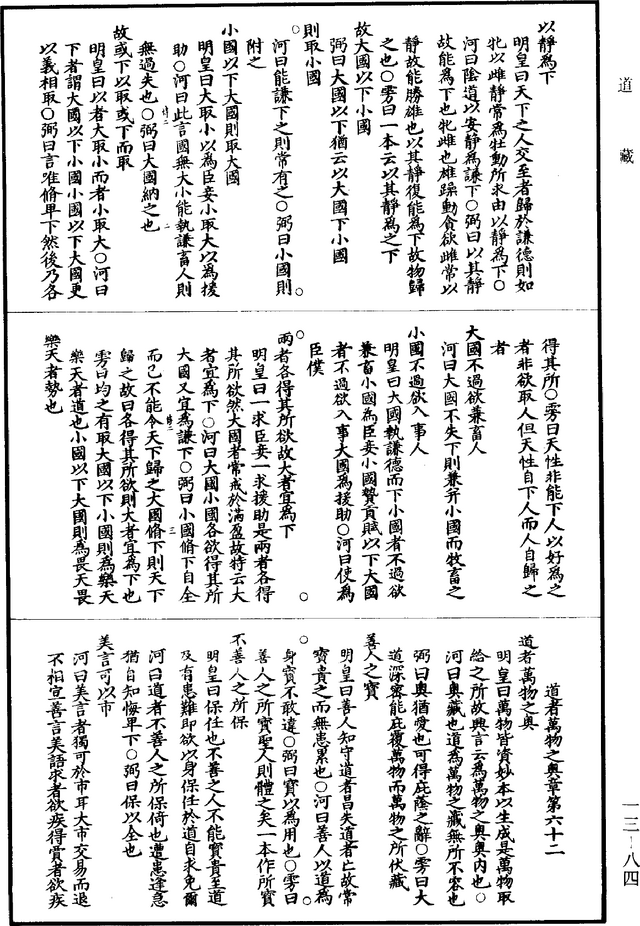 道藏
以靜為下
明皇曰天下之人交至者歸於謙德則如
牝以雌靜常為牡動所求由以靜為下○
河曰陰道以安靜為謙下○弼曰以其靜
故能為下也牝雌也雄躁動貪欲雌常以
靜故能勝雄也以其靜復能為下故物歸
之也○雱曰一本云以其靜為之下
故大國以下小國
弼曰大國以下猶云以大國下小國
則取小國
河曰能謙下之則常有之○弼曰小國則
附之
小國以下大國則取大國
明皇曰大取小以為臣妾小取大以為援
助○河曰此言國無大小能執謙畜人則
無過失也○弼曰大國納之也
故或下以取或下而取
明皇曰以者大取小而者小取大○河曰
下者謂大國以下小國小國以下大國更
以義相取○弼曰言唯脩卑下然後乃各
得其所○雱曰天性非能下人以好為之
者非欲取人但天性自下人而人自歸之
者
大國不過欲兼畜人
河曰大國不失下則兼并小國而牧畜之
小國不過欲入事人
明皇曰大國執謙德而下小國者不過欲
兼畜小國為臣妾小國贄貢賦以下大國
者不過欲入事大國為援助○河曰使為
臣僕
兩者各得其所欲故大者宜為下
明皇曰一求臣妾一求援助是兩者各得
其所欲然大國者常戒於滿盈故特云大
者宜為下○河曰大國小國各欲得其所
大國又宜為謙下○弼曰小國脩下自全
而已不能令天下歸之大國脩下則天下
歸之故曰各得其所欲則大者宜為下也
雱曰均之有取大國以下小國則為樂天
樂天者道也小國以下大國則為畏天畏
樂天者勢也
道者萬物之奧章第六十二
道者萬物之奧
明皇曰萬物皆資妙本以生成是萬物取
給之所故興言云為萬物之奧奧內也○
河曰奧藏也道為萬物之藏無所不容也
弼曰奧猶愛也可得庇蔭之辭○雱曰大
道深密能庇覆萬物而萬物之所伏藏
善人之寶
明皇曰善人知守道者昌失道者亡故常
寶貴之而無患累也○河曰善人以道為
身寶不敢違○弼曰寶以為用也○雱曰
善人之所寶聖人則體之矣一本作所寶
不善人之所保
明皇曰保任也不善之人不能寶貴至道
及有患難即欲以身保任於道自求免爾
河曰道者不善人之所保倚也遭患逢急
猶自知悔卑下○弼曰保以全也
美言可以市
河曰美言者獨可於市耳夫市交易而退
不相宜善言美語求者欲疾得賣者欲疾
一三—八四